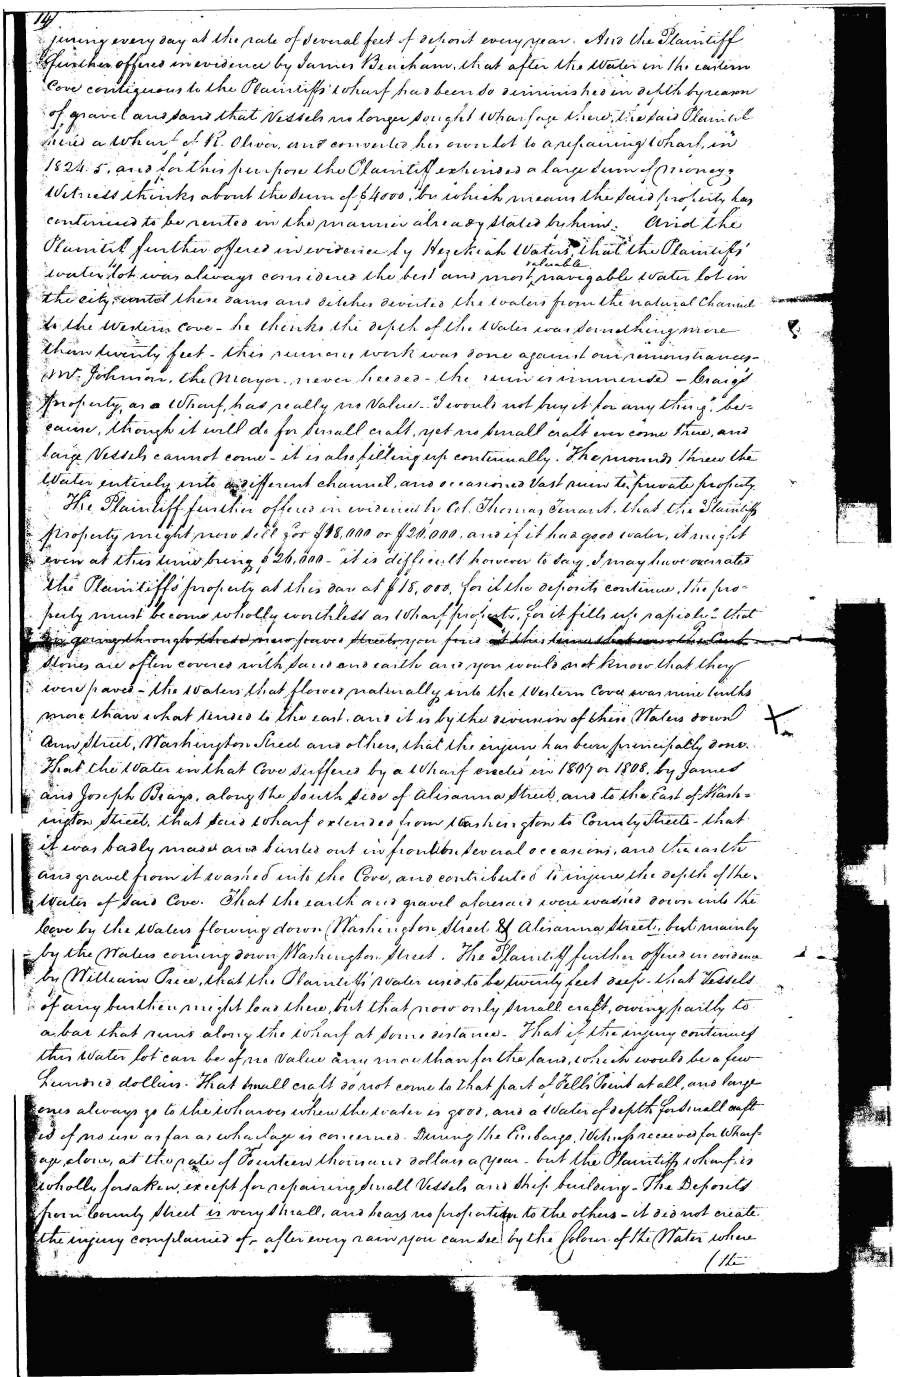 14)
juring every day at the rate of several feet of deposit every year. And the Plaintiff
further offered in evidence by James Beacham, that after the Water in the eastern
Cove contiguous to the Plaintiffs' wharf had been so diminished in depth by reason
of gravel and sand that Vessels no longer sought Wharfage there, the said Plaintiff
hired a Wharf of R. Oliver, and converted his own lot to a repairing Wharf, in
1824. 5, and for this purpose the Plaintiff expended a large Sum of money;
Witness thinks about the sum of $4000, by which means the said property has
continued to be rented in the manner already stated by him. And the
Plaintiff further offered in evidence by Hezekiah Waters, that the Plaintiffs'
valuable
water lot was always considered the best and most navigable water lot in
the city, until these dams and ditches diverted the waters from the natural Channel
to the Western Cove - he thinks the depth of the Water was something more
than twenty feet - this ruinous work was done against our remonstrances -
Mr. Johnson, the Mayor, never heeded - the ruin is immense - Craig's
property, as a Wharf, has really no Value - "I would not buy it for any thing", be=
cause, though it will do for small craft, yet no small craft ever come there, and
large Vessels cannot come - it is also filling up continually. The mounds threw the
Water entirely into a different channel, and occasioned vast ruin to private property
The Plaintiff further offered in evidence by Col. Thomas Tenant, that the Plaintiffs
property might now sell for $18,000 or $20,000. and if it had good water, it might
even at this time bring $26,000 - "it is difficult however to say, I may have overrated
the Plaintiffs' property at this day at $18,000, for if the deposits continue, the pro-
perty must become wholly worthless as Wharf property, for it fills up rapidly" - that
in going through these new paved Streets, you find at this time that
stones are often covered with sand and earth and you would not know that they
were paved - the Waters that flowed naturally into the Western Cove was nine tenths
more than what tended to the east, and it is by the diversion of these Waters down
Ann Street, Washington Street and others, that the injury has been principally done.
That the Water in that Cove suffered by a Wharf erected in 1807 or 1808, by James
and Joseph Biays, along the South side of Alisanna Street, and to the East of Wash=
ington Street, that said wharf extended from Washington to County Streets - that
it was badly made and bursted out in front on several occasions, and the earth
and gravel from it washed into the Cove, and contributed to injure the depth of the
Water of said Cove. That the earth and gravel aforesaid were washed down into the
Cove by the Waters flowing down Washington Street & Alisanna Street, but mainly
by the Waters coming down Washington Street. The Plaintiff further offered in evidence
by William Price, that the Plaintiffs' water used to be twenty feet deep - that Vessels
of any burthen might load there, but that now only small craft, owing partly to
a bar that runs along the wharf at some distance - That if the injury continues
this Water lot can be of no Value any more than for the land, which would be a few
hundred dollars. That small craft do not come to that part of Fells' Point at all, and large
ones always go to the wharves where the water is good, and a Water of depth for small craft
is of no use as far as wharfage is concerned. During the Embargo, Witness received for Wharf-
age alone, at the rate of Fourteen thousand dollars a year - but the Plaintiffs wharf is
wholly forsaken, except for repairing small Vessels and Ship building - The Deposits
from County Street is very small, and bears no proportion to the others - it did not create
the injury complained of - after every rain you can see by the Colour of the Water where
(the